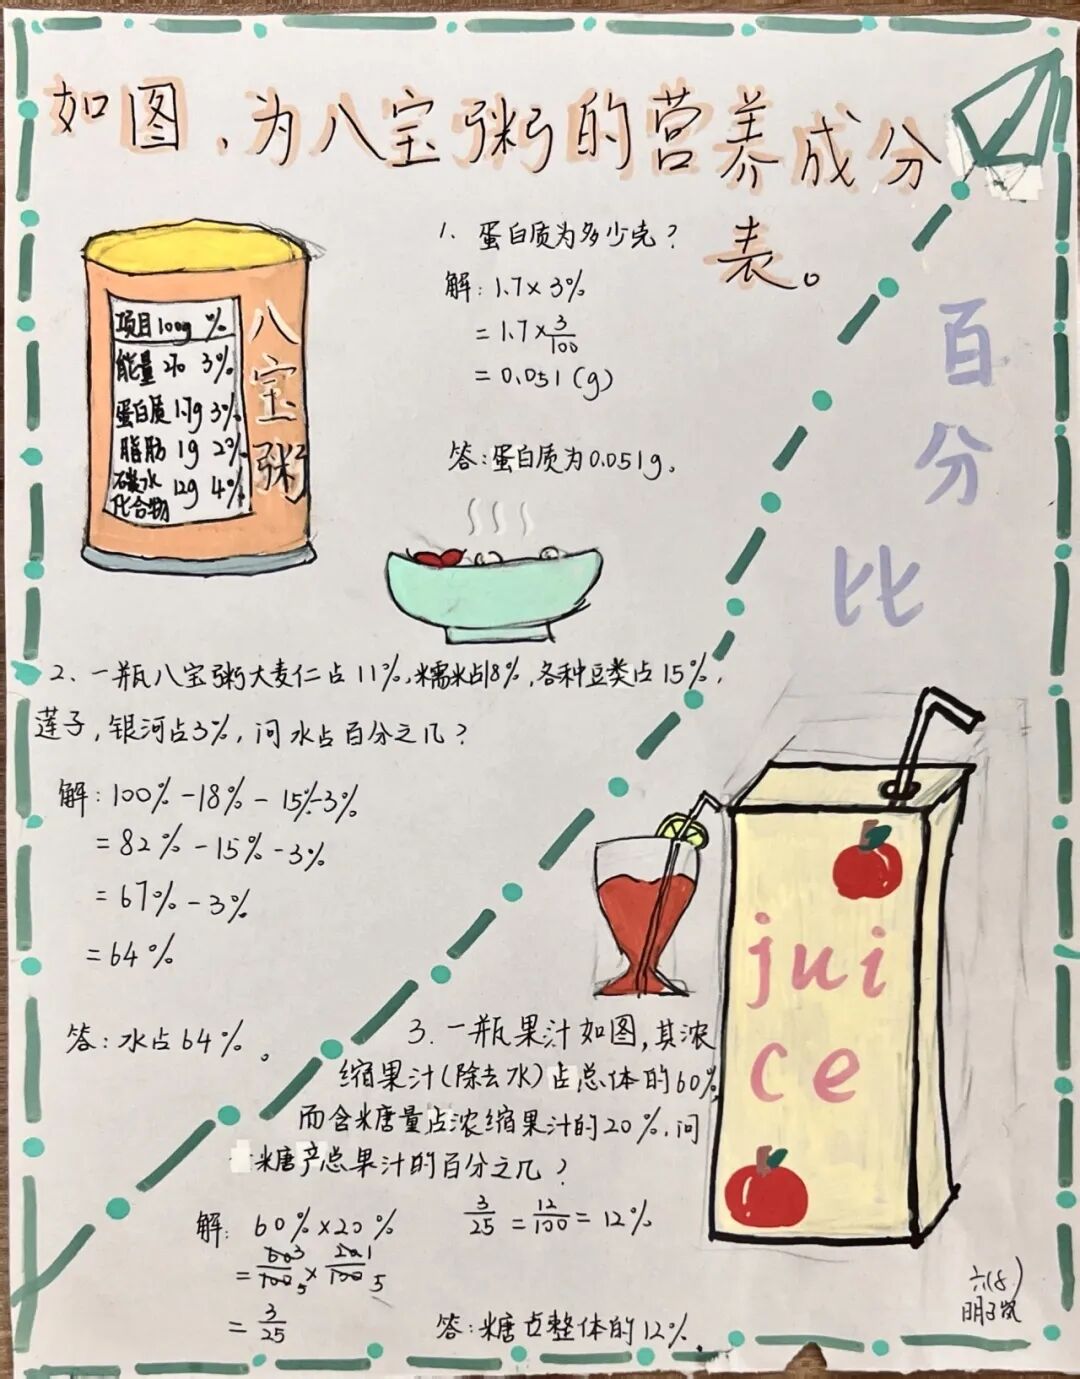 如图,为八宝粥的营养成分
表。
百
分
比
八
宝
粥
项目100g %
能量 3%
蛋白质1.7g 3%
脂肪 1g 2%
碳水 12g 4%
化合物
1、蛋白质为多少克?
解:1.7×3%
=1.7×3/100
=0.051(g)
答:蛋白质为0.051g。
2、一瓶八宝粥大麦仁占11%,糯米占18%,各种豆类占15%,
莲子,银河占3%,问水占百分之几?
解:100%-18%-15%-3%
=82%-15%-3%
=67%-3%
=64%
答:水占64%。
juice
3.一瓶果汁如图,其浓
缩果汁(除去水)占总体的60%,
而含糖量占浓缩果汁的20%.问
糖产总果汁的百分之几?
解:60%×20% 3/25=12/100=12%
=60 3/100 5×20 1/100 5
=3/25
答:糖占整体的12%.
六(8)